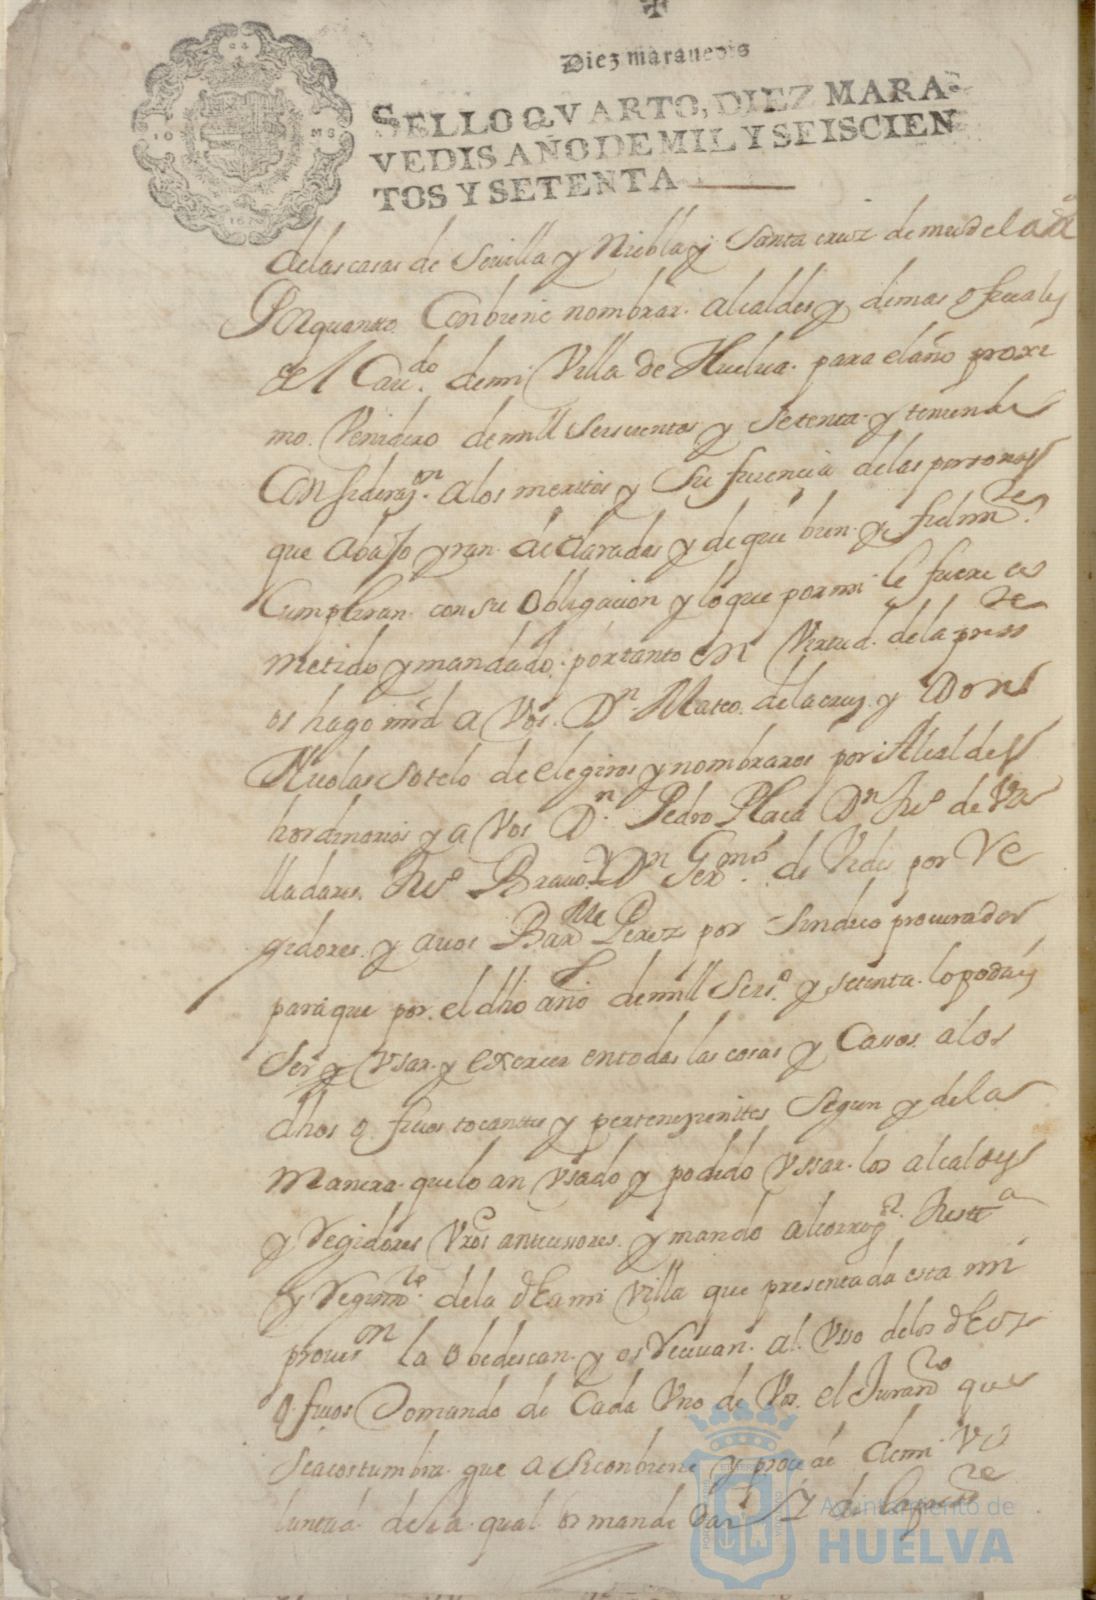 Diez maravedis
SELLO QVARTO, DIEZ MARA-
VEDIS AÑO DE MIL Y SEISCIEN
TOS Y SETENTA
de las casas de Sevilla y Niebla y Santa cruz de mudela &a
Por quanto Conbiene nombrar alcaldes y demas ofiçiales
del Cavdo. de mi Villa de Huelva para el año proxi
mo Venidero de mill seiscientos y setenta y teniendo
Consideraçon. a los meritos y Sufiçiencia de las personas
que abajo yran declaradas y de que bien y fielmte.
Cumpliran con su obligaçion y lo que por mi le fuere co
metido y mandado por tanto en Virtud de la presste
os hago mrd a Vos Dn. Mateo de la cruz y Don
Nicolas sotelo de elegiros y nombraros por Alcaldes
hordinarios y a Vos Dn. Pedro Plaça Dn
lladares Bravo y Dn Germo. de por Re
gidores y a vos Barme Perez por Sindico procurador
para que por el dho año de mill seiso. y setenta lo podais
Ser y Vsar y exercer en todas las cosas y Casos a los
dhos ofiçios tocantes y perteneçientes Segun y de la
Manera que lo an Vsado y podido Vssar los alcaldes
y Regidores Vros antessores y mando al corregor. Justa
y Regimto. de la dha mi Villa que presentada esta mi
provison la obedescan y os Recivan al Vsso de los dhos
ofiçios Tomando de Cada Vno de Vos el Juramto que
Se acostumbra que asi conbiene y proçede de mi Vo
luntad de la qual os mande dar de la presste
Ayuntamiento de
HUELVA